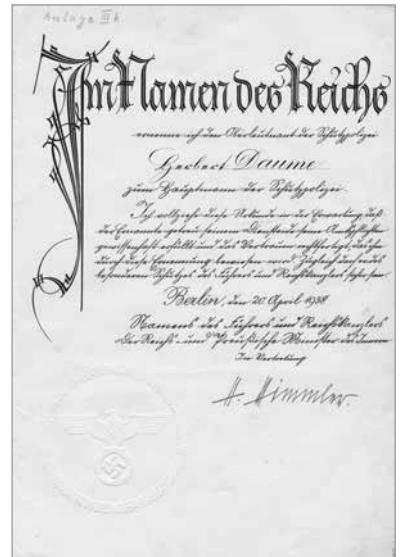 Anlage III h.
Im Namen des Reichs
ernenne ich den Oberleutnant der Schutzpolizei
Herbert Daume
zum Hauptmann der Schutzpolizei.
Ich vollziehe diese Urkunde in der Erwartung, daß
der Ernannte getreu seinem Diensteide seine Amtspflichten
gewissenhaft erfüllt und das Vertrauen rechtfertigt, das ihm
durch diese Ernennung bewiesen wird. Zugleich darf er des
besonderen Schutzes des Führers und Reichskanzlers sicher sein.
Berlin, den 20 April 1938
Namens des Führers und Reichskanzlers
Der Reichs- und Preußische Minister des Innern
In Vertretung
H. Himmler.